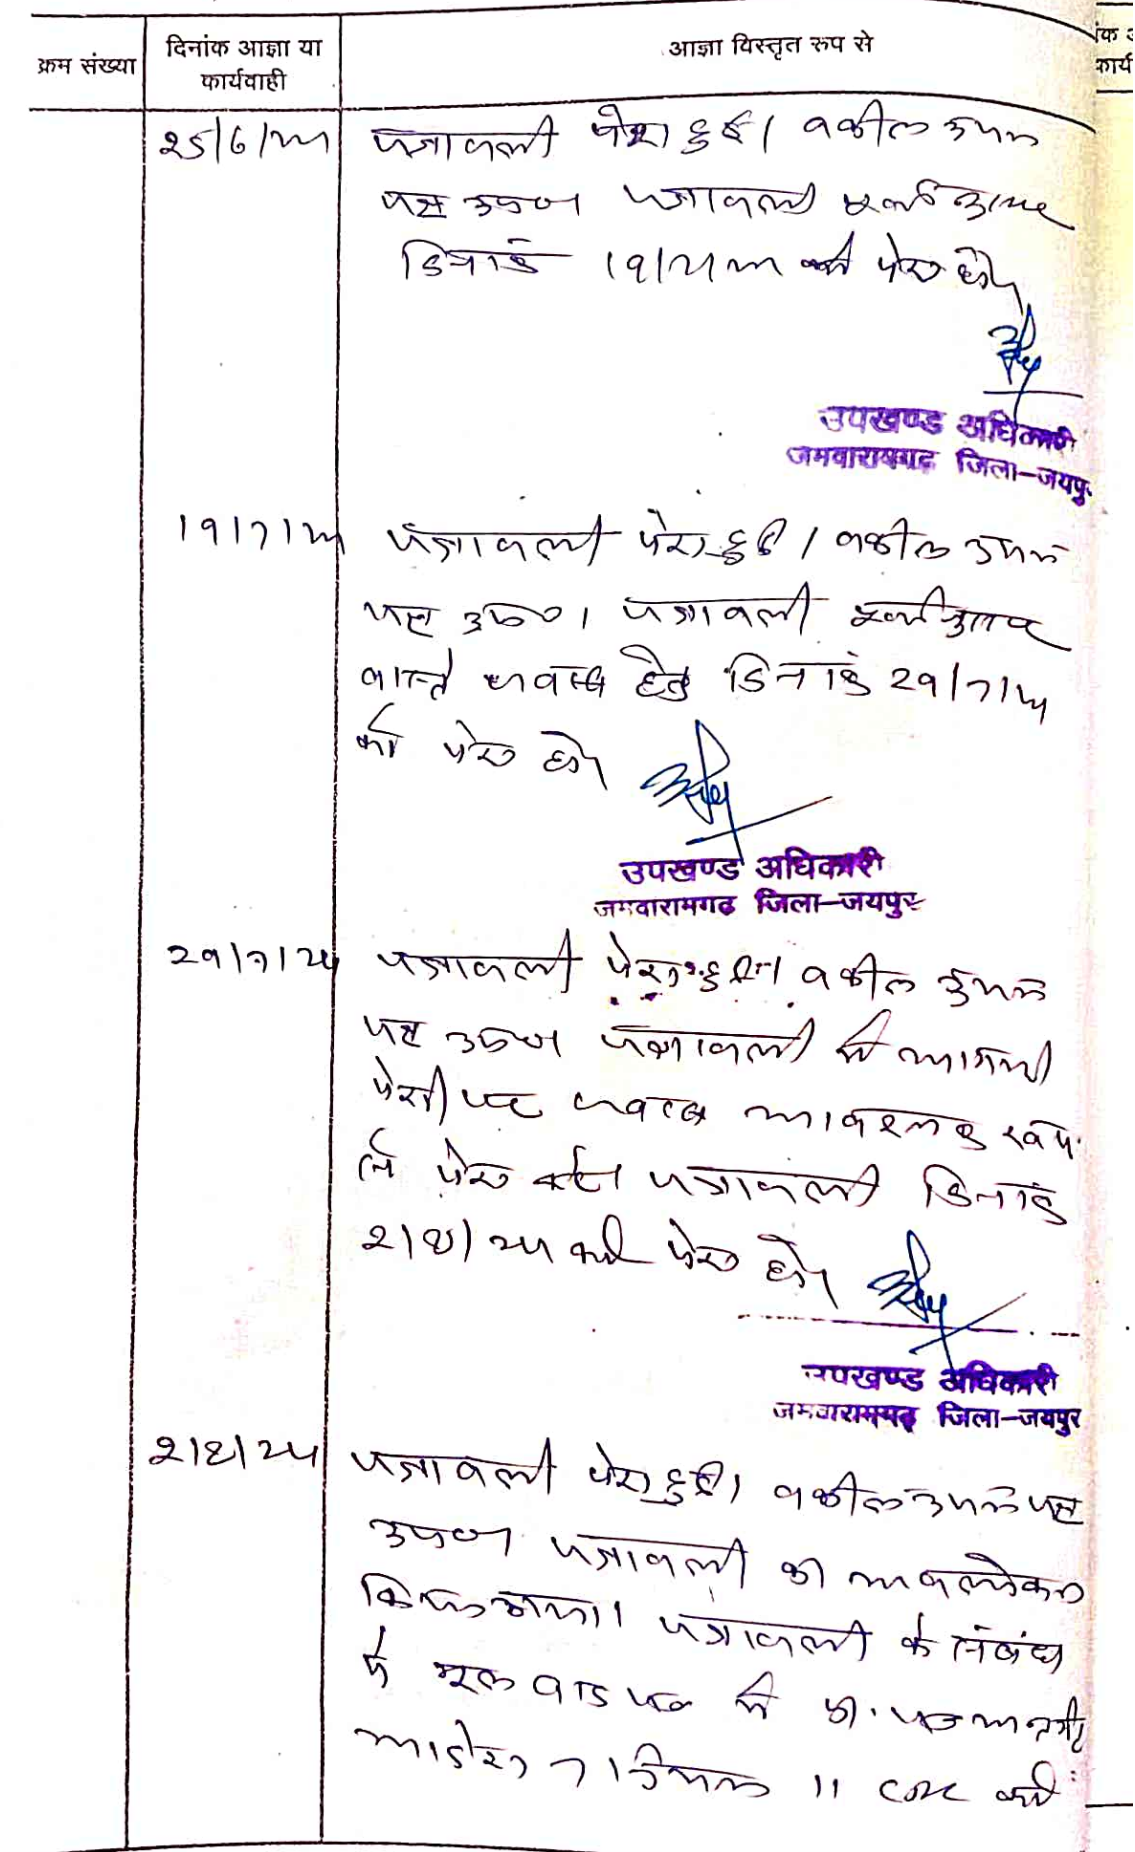 क्रम संख्या
दिनांक आज्ञा या
कार्यवाही
आज्ञा विस्तृत रूप से
25/6/24
पत्रावली पेश हुई। वकील उभय
पक्ष उप०। पत्रावली
दिनांक 19/7/24 को पेश हो।
उपखण्ड अधिकारी
जमवारामगढ़ जिला-जयपुर
19/7/24
पत्रावली पेश हुई। वकील उभय
पक्ष उप०। पत्रावली
वास्ते बहस हेतु दिनांक 29/7/24
को पेश हो।
उपखण्ड अधिकारी
जमवारामगढ जिला-जयपुर
29/7/24
पत्रावली पेश हुई। वकील उभय
पक्ष उप०। पत्रावली में आगामी
पेशी पर बहस आवश्यक रूप
से पेश करें। पत्रावली दिनांक
2/8/24 को पेश हो।
उपखण्ड अधिकारी
जमवारामगढ़ जिला-जयपुर
2/8/24
पत्रावली पेश हुई। वकील उभय पक्ष
उप०। पत्रावली का अवलोकन
किया गया। पत्रावली के संबंध
में मूल वाद पत्र में प्रा. पत्र अन्तर्गत
आदेश 7 नियम 11 CPC को